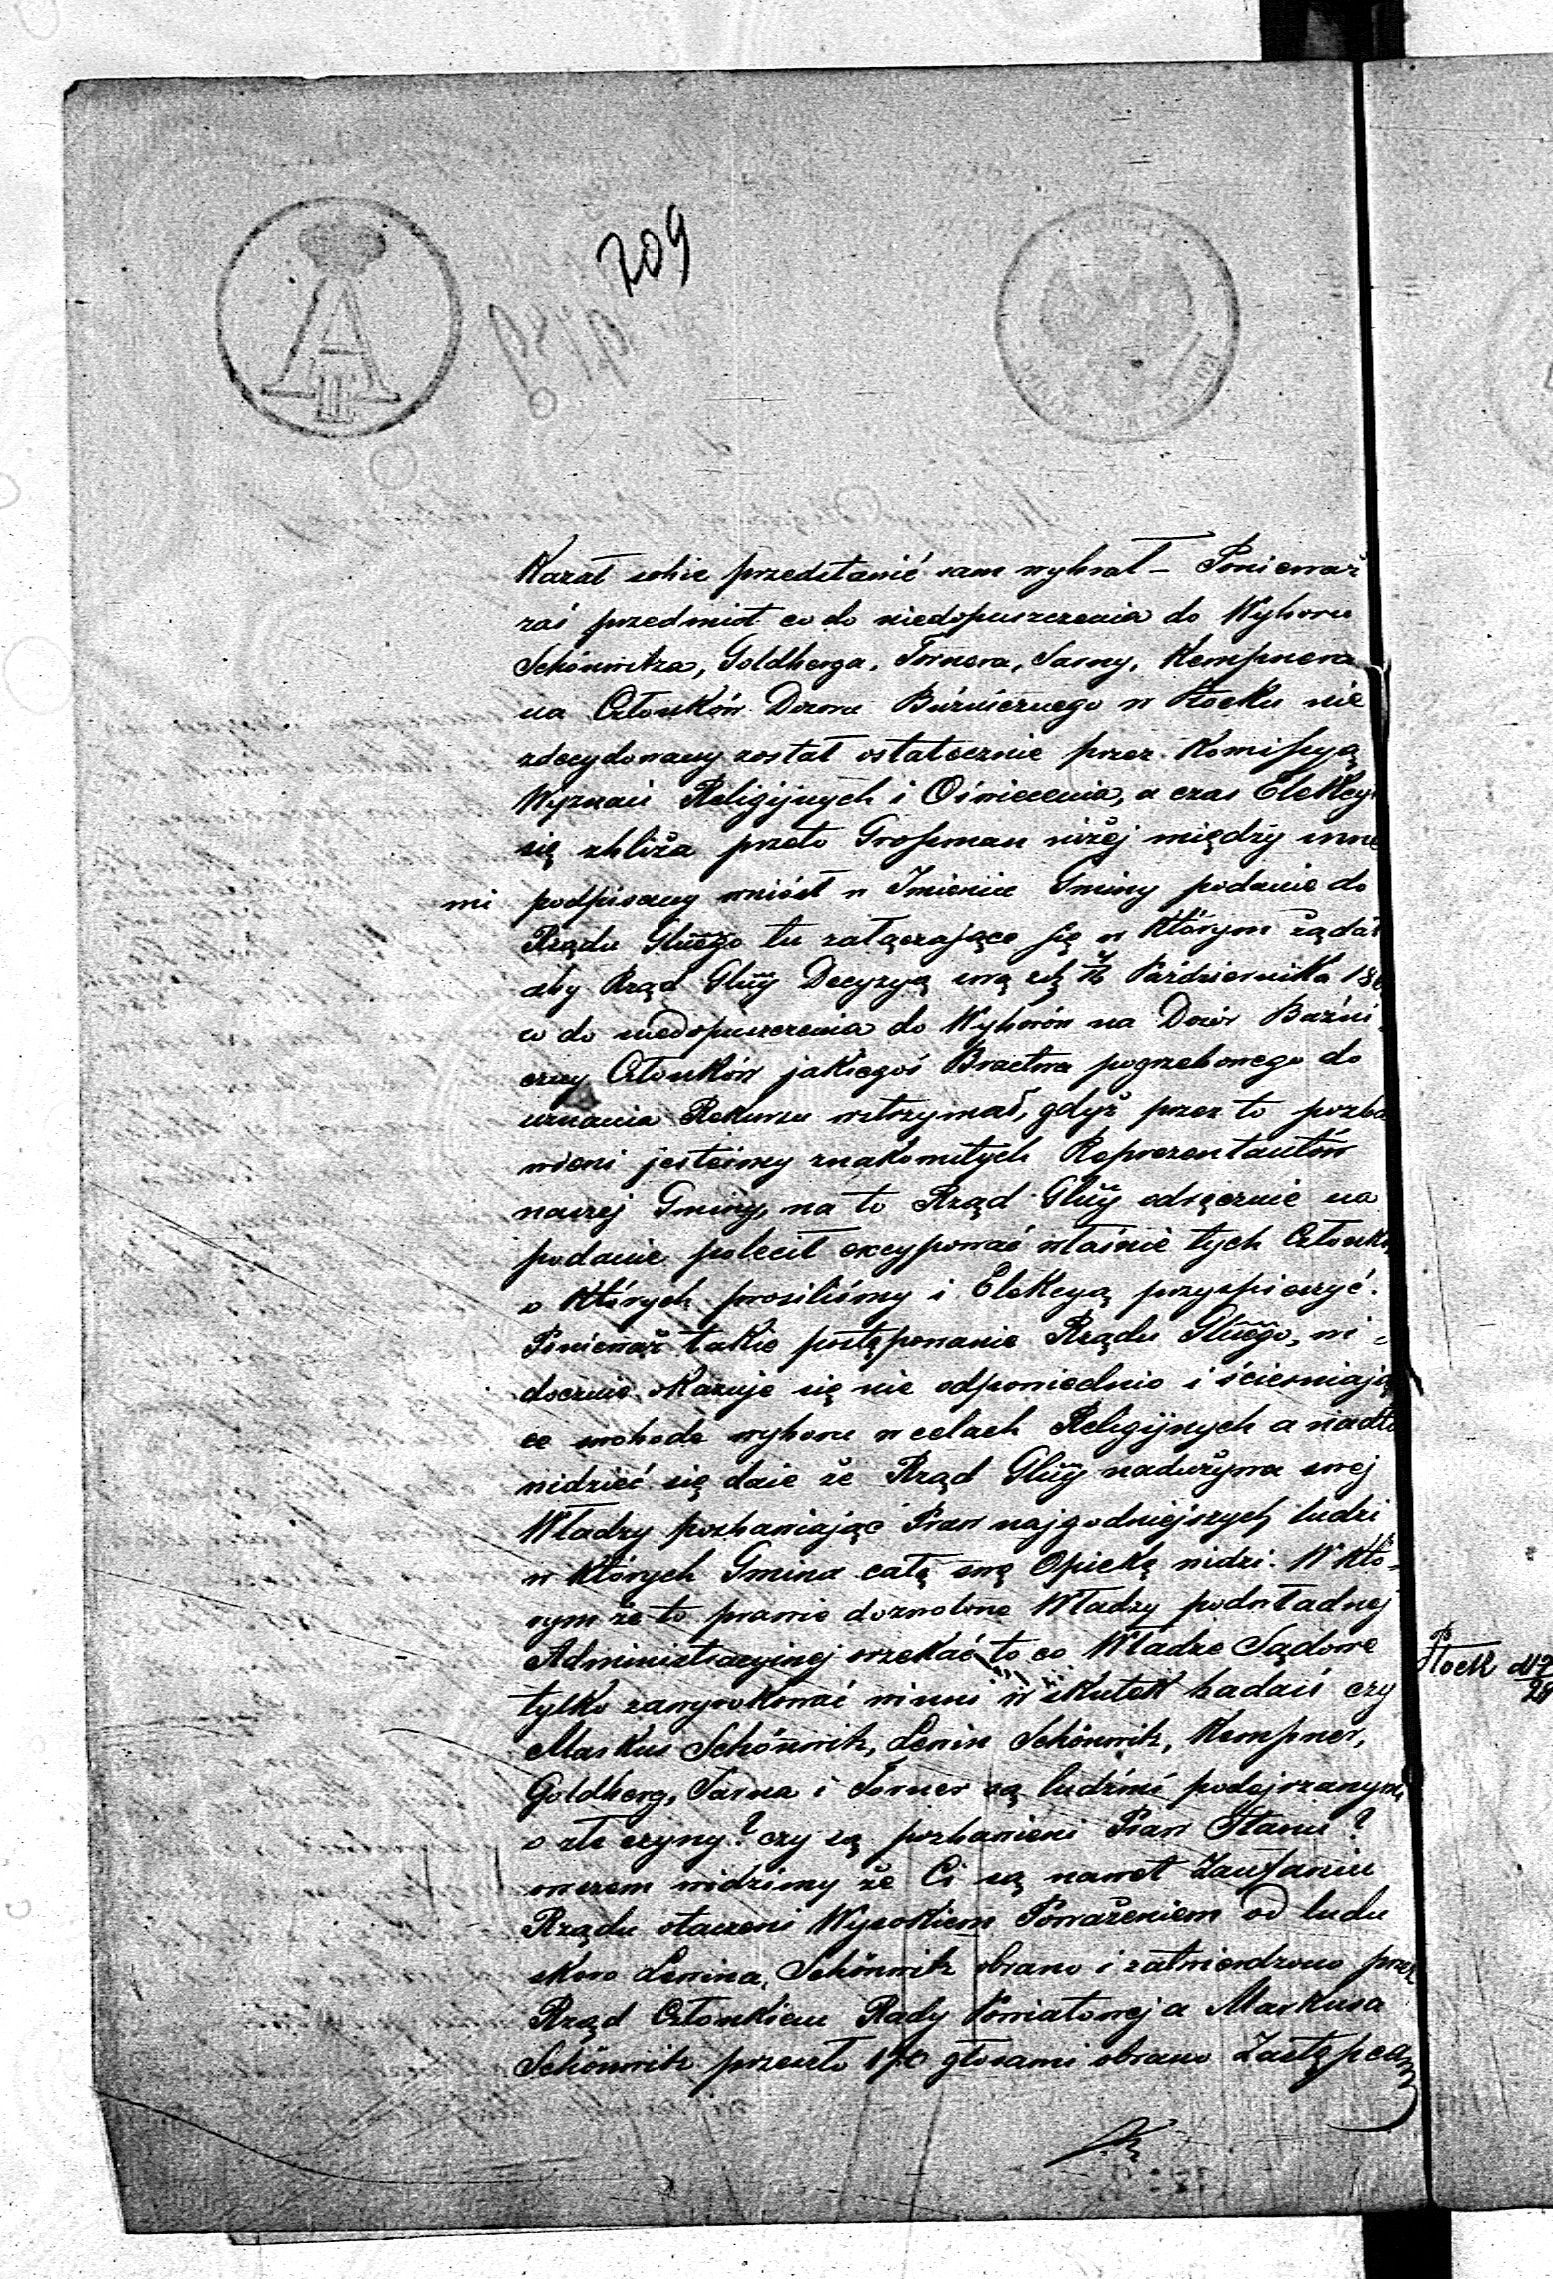 709
Kazał sobie przedstawić sam wybrał – Ponieważ
zaś przedmiot co do niedopuszczenia do Wyboru
Schönwitza, Goldberga, Tornera, Sarny, Kempnera
na Członków Dozoru Bóżniczego w Płocku nie
zdecydowany został ostatecznie przez Komissyą
Wyznań Religijnych i Oświecenia, a czas Elekcyi
się zbliża przeto Grossman niżej między inne
mi podpisany wniósł w Imieniu Gminy podanie do
Rządu Glnego tu załączające się w którym żądał
aby Rząd Glny Decyzyą swą z d. Października 186
co do niedopuszczenia do Wyborów na Dozór Bóżni
czny Członków jakiegoś Bractwa pogrzebowego do
uznania Rekursu wstrzymał, gdyż przez to pozba
wieni jesteśmy znakomitych Reprezentantów
naszej Gminy, na to Rząd Glny odręcznie na
podanie polecił excypować właśnie tych Członków
o których prosiliśmy i Elekcyą przyspieszyć.
Ponieważ takie postępowanie Rządu Glnego, wi-
docznie okazuje się nie odpowiednie i ścieśniają
ce swobodę wyboru w celach Religijnych a nadto
widzieć się daie że Rząd Glny nadużywa swej
Władzy pozbawiając Praw najgodniejszych ludzi
w których Gmina całą swą Opiekę widzi. W któ-
rym że to prawie dozwolone Władzy podwładnej
Administracyjnej orzekać to co Władze Sądowe
tylko zawyrokować winni w skutek badań czy
Markus Schönwitz, Lewin Schönwitz, Kempner,
Goldberg, Sarna i Torner są ludźmi podejrzanymi
o złe czyny? czy są pozbawieni Praw Stanu?
owszem widzimy że Ci są nawet Zaufaniu
Rządu otaczeni Wysokiem Poważeniem od ludu
skoro Lewina Schönwitz obrano i zatwierdzono przez
Rząd Członkiem Rady Powiatowej a Markusa
Schönwitz przeszło 170 głosami obrano Zastępcą
Płock d 17